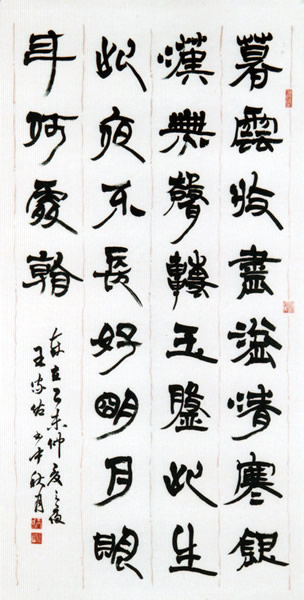 暮雲收盡溢清寒銀
漢無聲轉玉盤此生
此夜不長好明月明
年何處看
乙未仲夏之夜
王 书中秋月